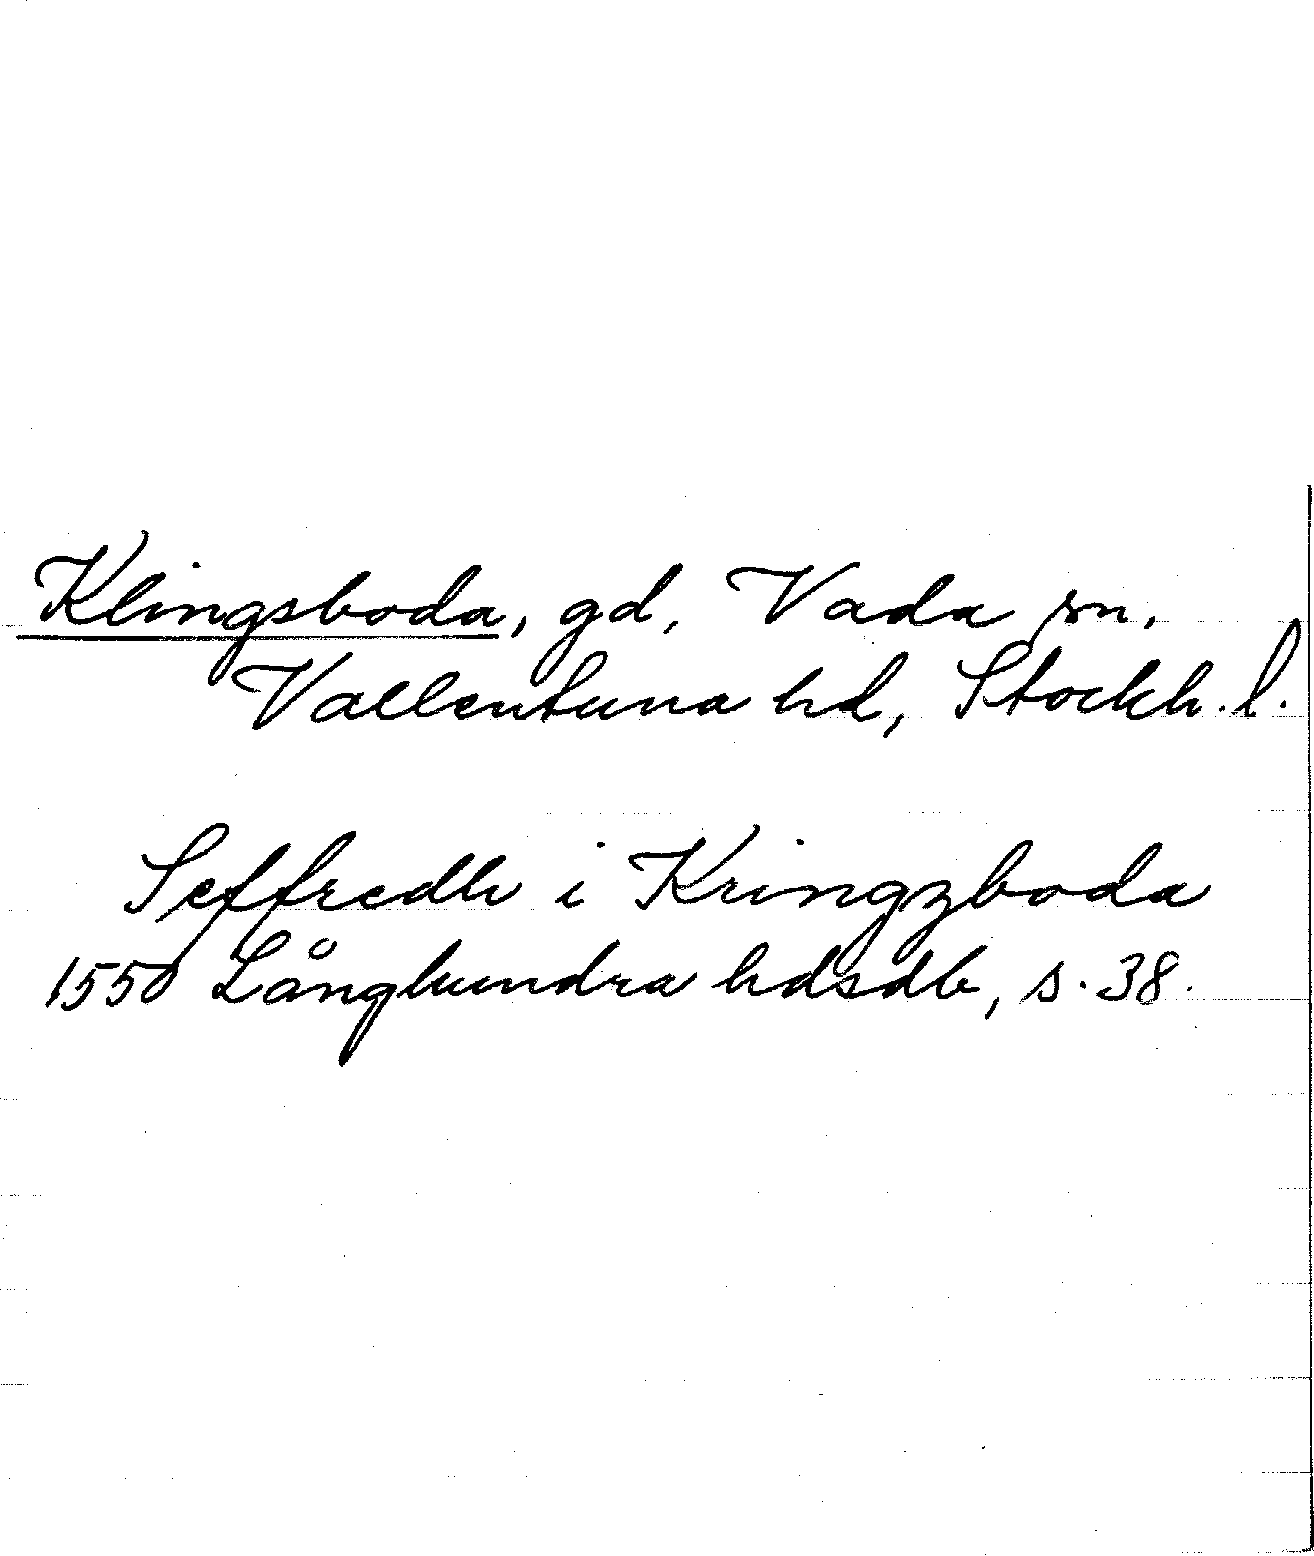 Klingsboda, gd, Vada sn.
Vallentuna hd, Stockh. l.
Seffredh i Kringzboda
1550 Långhundra hdsdb, s. 38.